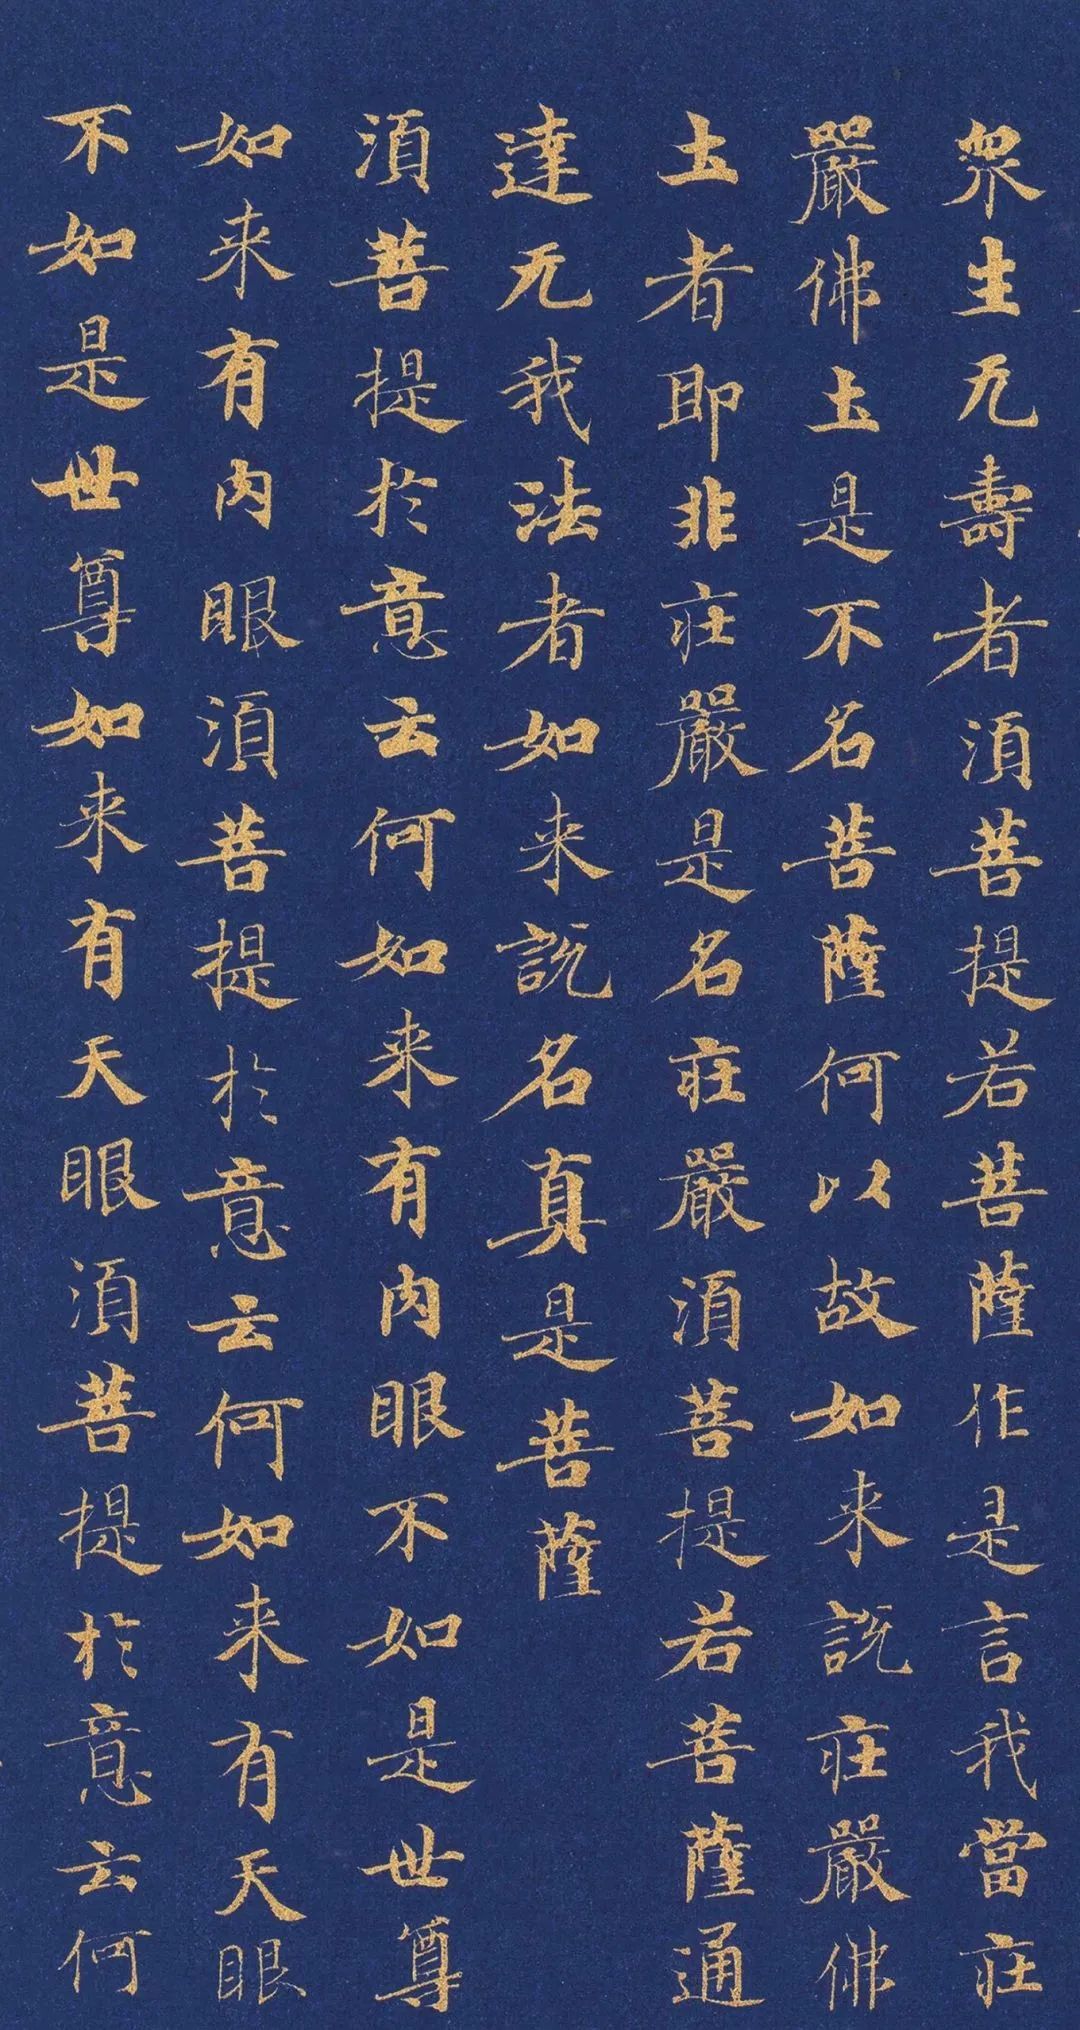 眾生无壽者須菩提若菩薩作是言我當莊
嚴佛土是不名菩薩何以故如来說莊嚴佛
土者即非莊嚴是名莊嚴須菩提若菩薩通
達无我法者如来說名真是菩薩
須菩提於意云何如来有肉眼不如是世尊
如来有肉眼須菩提於意云何如来有天眼
不如是世尊如来有天眼須菩提於意云何